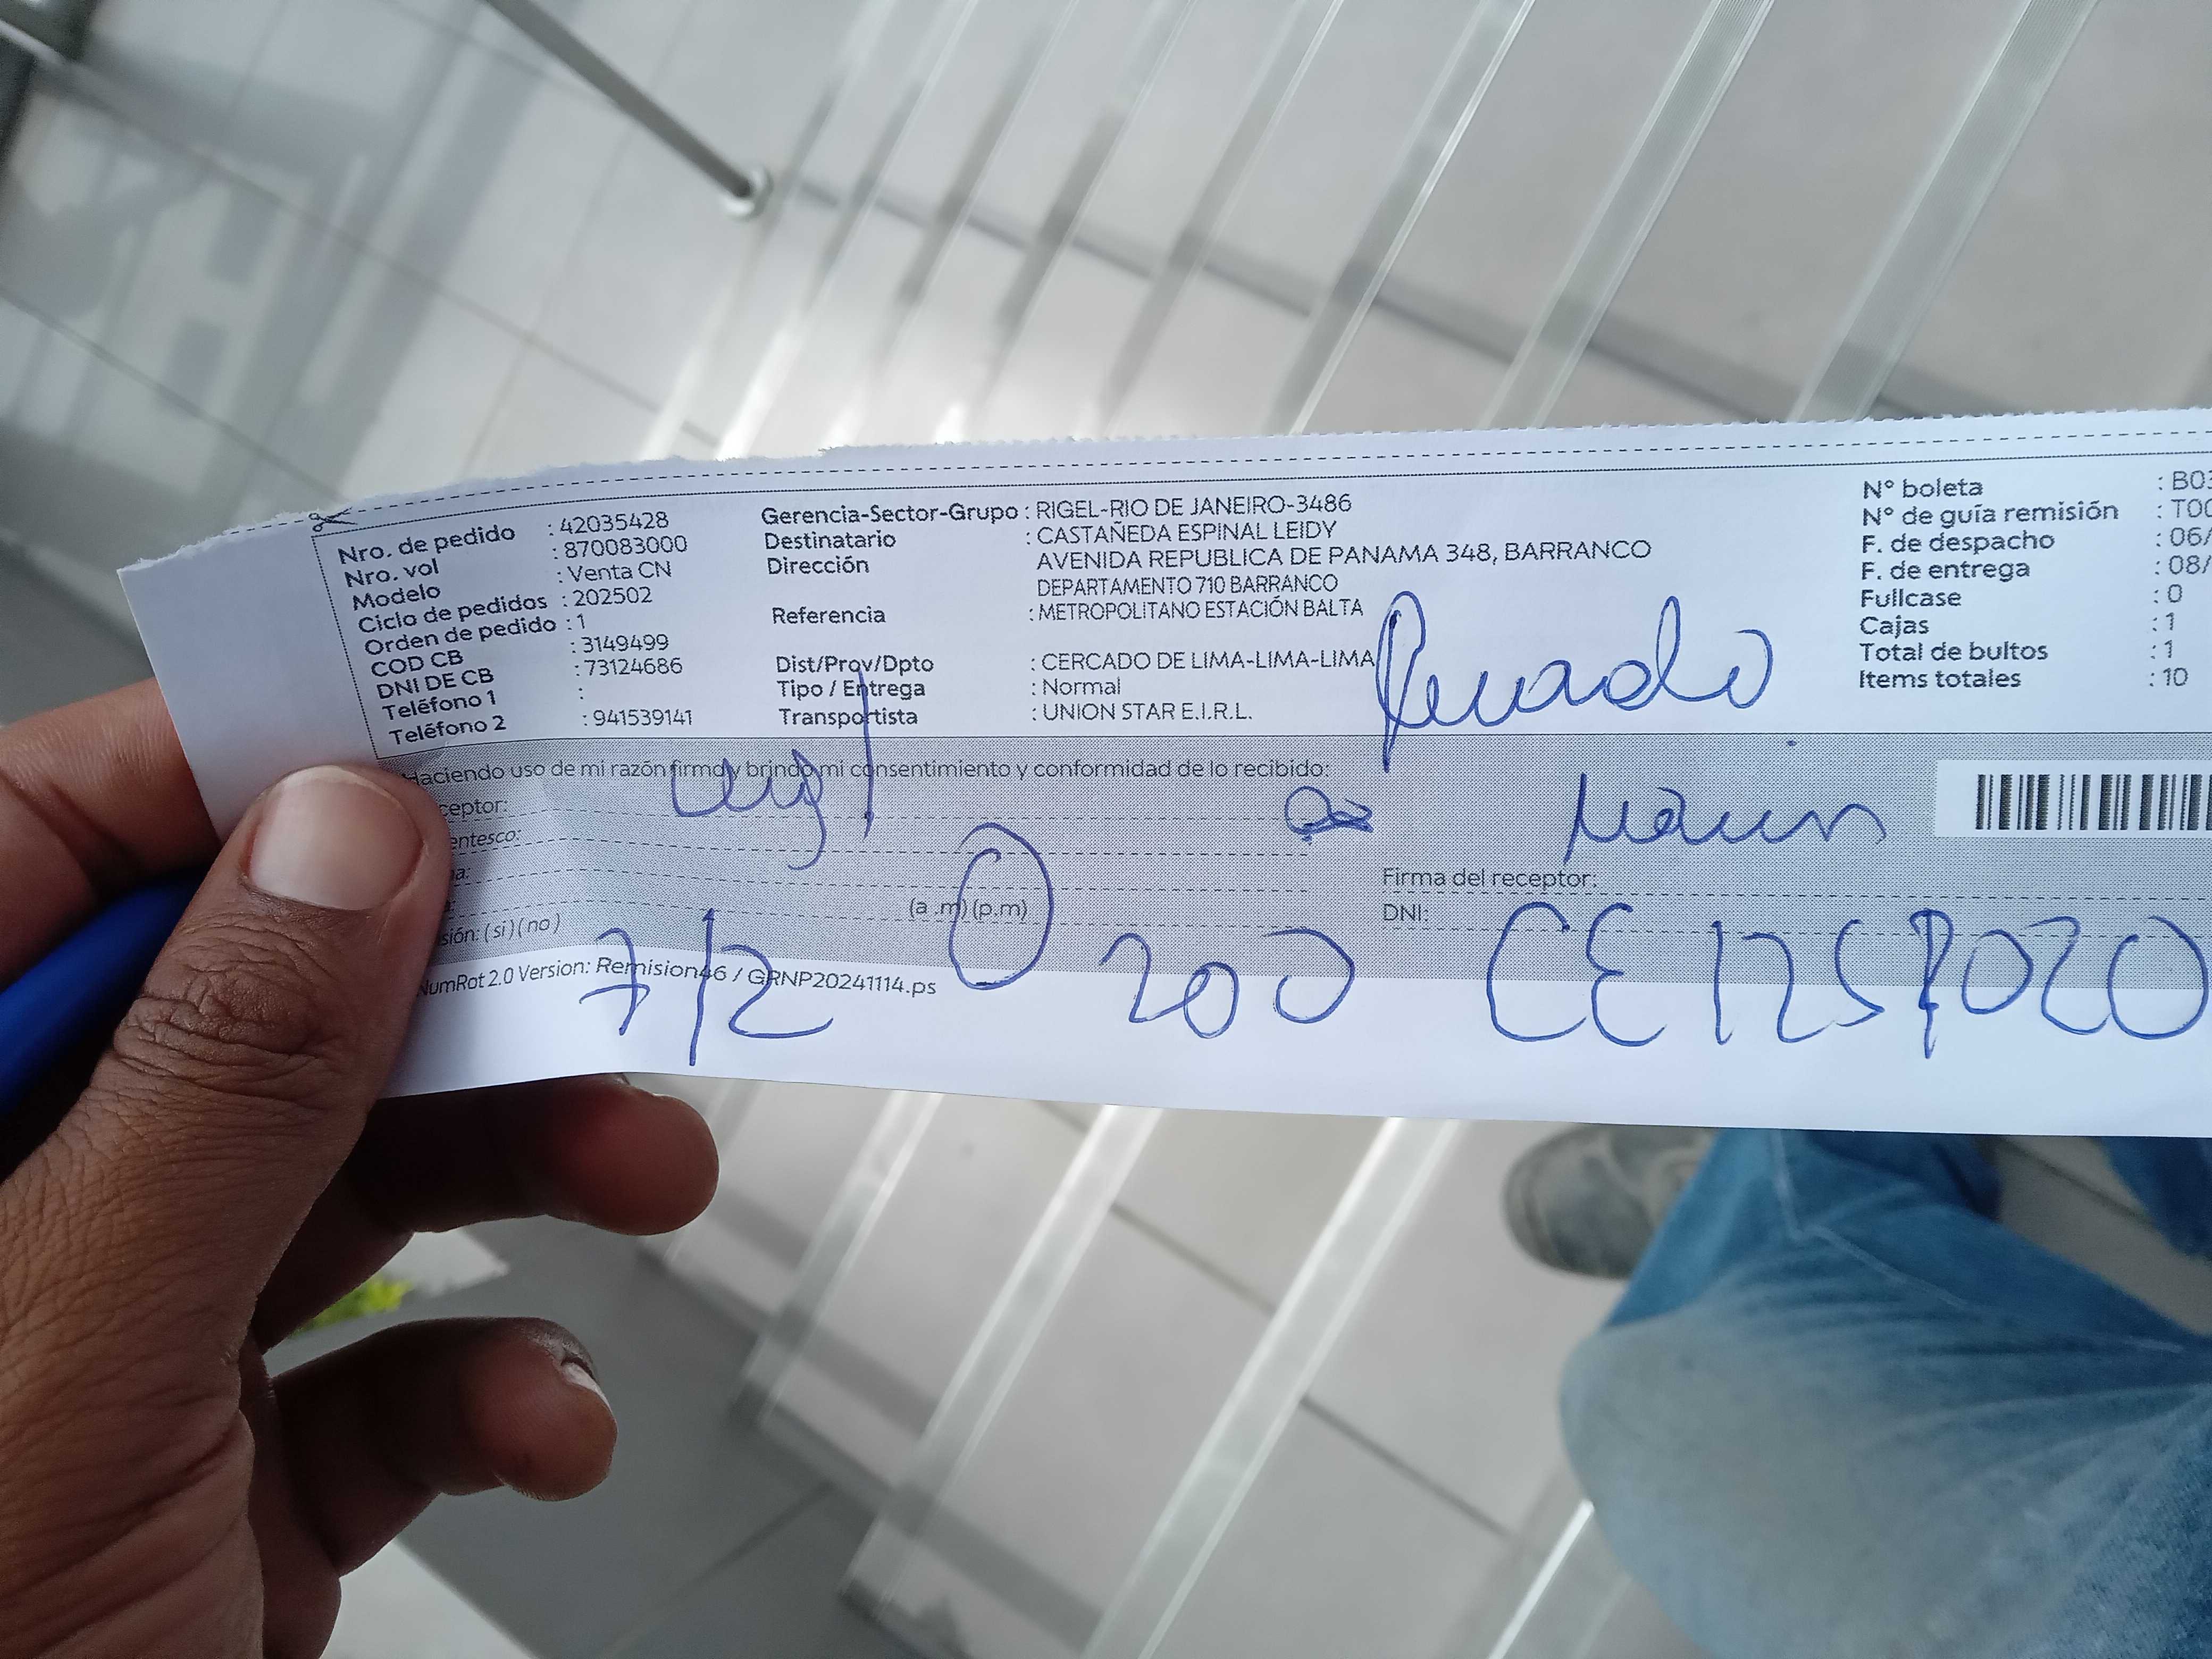 Nro. de pedido : 42035428
Nro. vol : 870083000
Modelo : Venta CN
Ciclo de pedidos : 202502
Orden de pedido : 1
COD CB : 3149499
DNI DE CB : 73124686
Teléfono 1 :
Teléfono 2 : 941539141
Gerencia-Sector-Grupo : RIGEL-RIO DE JANEIRO-3486
Destinatario : CASTAÑEDA ESPINAL LEIDY
Dirección AVENIDA REPUBLICA DE PANAMA 348, BARRANCO
DEPARTAMENTO 710 BARRANCO
Referencia : METROPOLITANO ESTACIÓN BALTA
Dist/Prov/Dpto : CERCADO DE LIMA-LIMA-LIMA
Tipo / Entrega : Normal
Transportista : UNION STAR E.I.R.L.
N° boleta : B03
N° de guía remisión : T00
F. de despacho : 06/
F. de entrega : 08/
Fullcase : 0
Cajas : 1
Total de bultos : 1
Items totales : 10
Haciendo uso de mi razón firmo y brindo mi consentimiento y conformidad de lo recibido:
ceptor:
entesco:
na:
(a .m) (p.m)
sión: ( si ) ( no )
Firma del receptor:
DNI:
7/2 200
NumRot 2.0 Version: Remision46 / GRNP20241114.ps